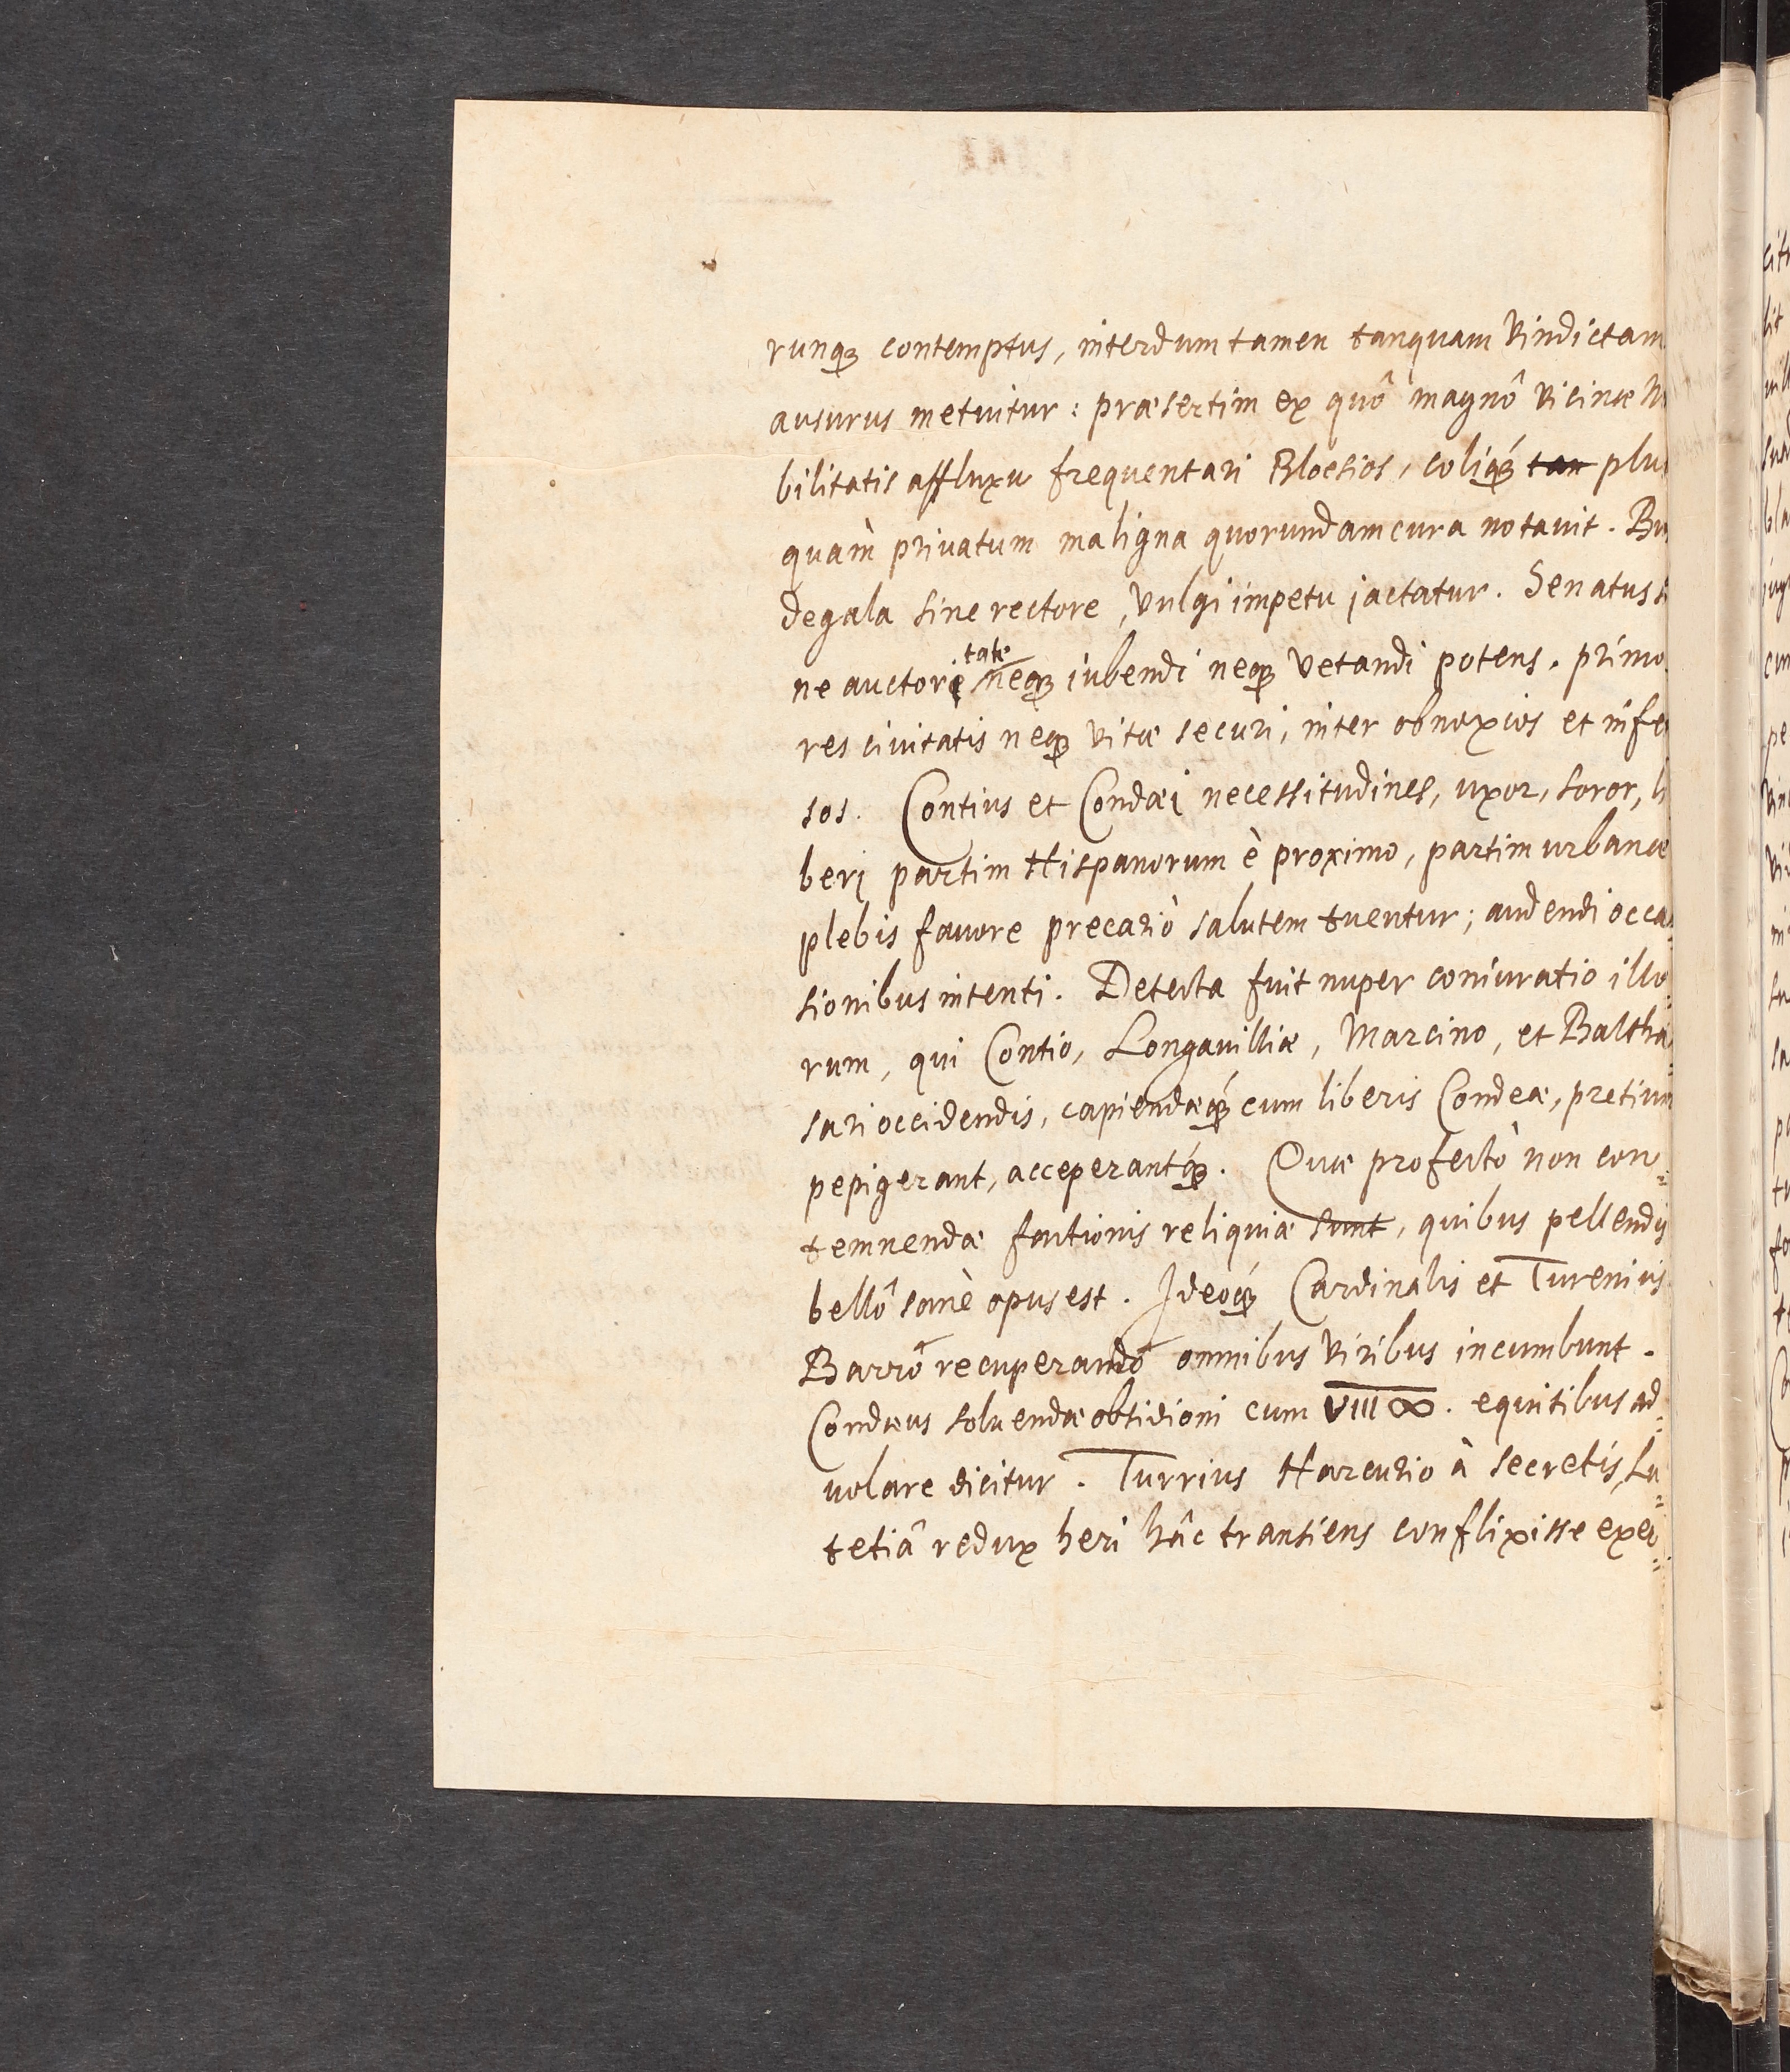 runq; contemptus, interdum tamen tanquam vindictam
ausurus metuitur: præsertim ex quô magnô vicinæ
bilitatis affluxu frequentari Bloesios, coliq; tan plus
quàm privatum maligna quorundam cura notavit. Bur
degala sine rectore, vulgi impetu jactatur. Senatus si
ne auctoritate neq; iubendi neq; vetandi potens. primo
res civitatis neq; vitæ securi, inter obnoxios et infe
sos. Contius et Condæi necessitudines, uxor, soror, li
beri partim Hispanorum è proximo, partim urbanæ
plebis favore precariò salutem tuentur; audendi occa
sionibus intenti. Detecta fuit nuper coniuratio illo
rum, qui Contio, Longavilliæ, Marcino, et Baltha
sari occidendis, capiendæq; cum liberis Condeæ, pretium
pepigerant, acceperantq;. Quæ profectò non con
temnendæ factionis reliquiæ sunt, quibus pellendis
bellô sanè opus est. Ideoq; Cardinalis et Turenius
Barrô recuperandô omnibus viribus incumbunt.
Condæus solvendæ obsidioni cum VIII ∞. equitibus ad
volare dicitur. Turrius Harcurio à secretis, Lu
tetiâ redux heri hâc transiens conflixisse exer